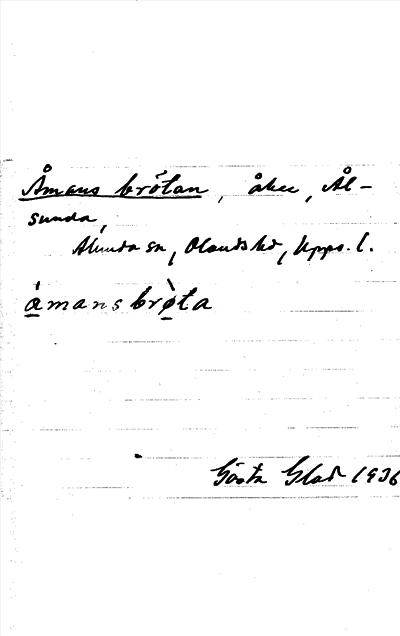 Åmans brötan, åker, Ål-
sunda,
Alunda sn, Olands hd, Upps. l.
åmansbròta
Gösta Glad 1936